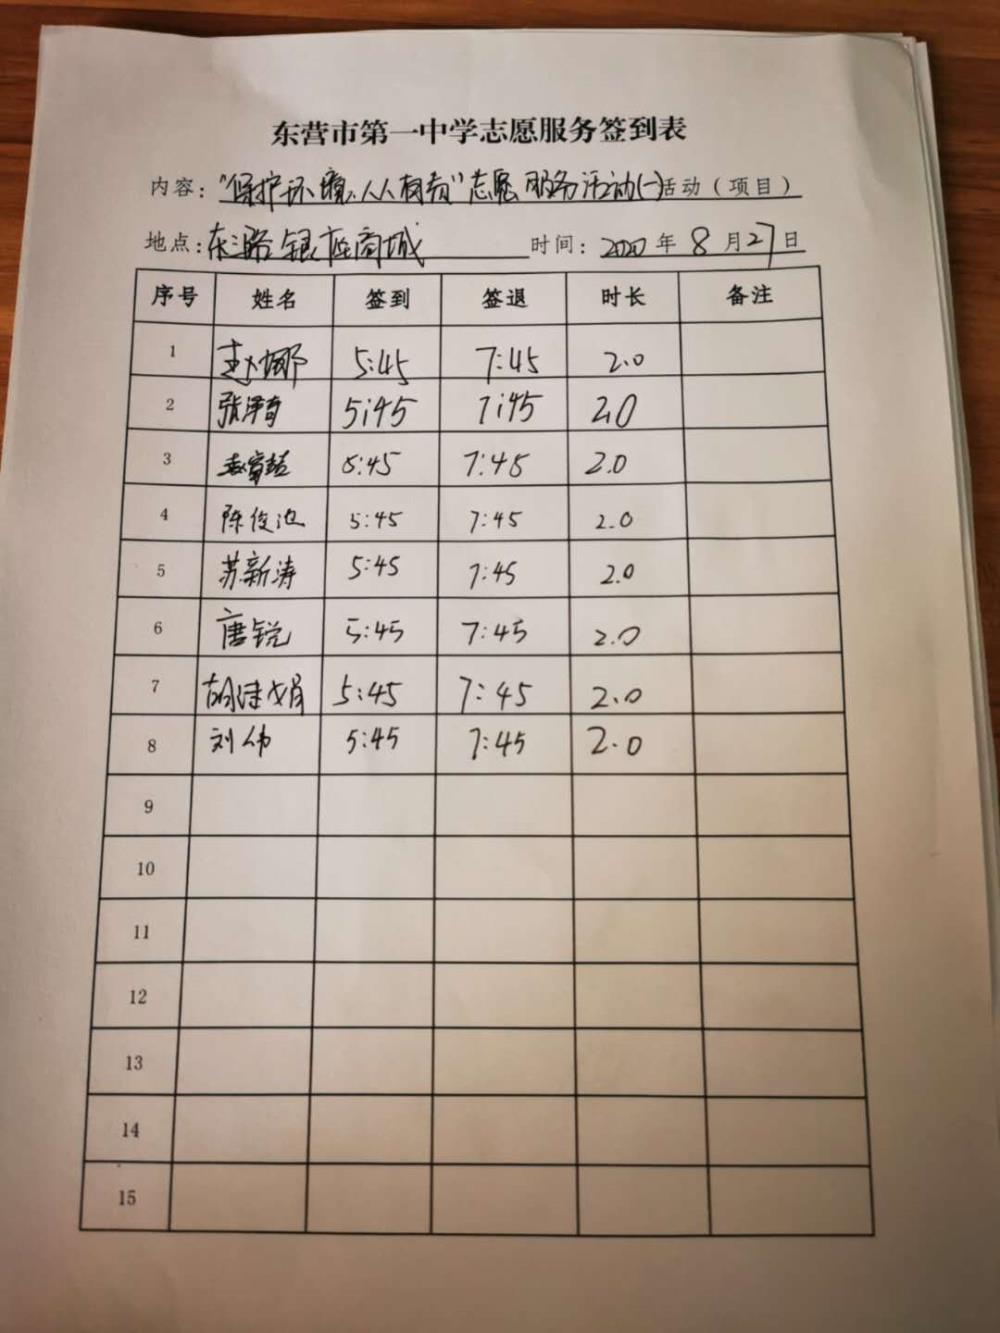 东营市第一中学志愿服务签到表
内容：“保护环境、人人有责”志愿服务活动(一)活动（项目）
地点：东三路银座商城 时间：2020年8月27日
序号 姓名 签到 签退 时长 备注
1 赵娜 5:45 7:45 2.0
2 5:45 7:45 2.0
3 5:45 7:45 2.0
4 陈俊池 5:45 7:45 2.0
5 苏新涛 5:45 7:45 2.0
6 唐锐 5:45 7:45 2.0
7 5:45 7:45 2.0
8 刘伟 5:45 7:45 2.0
9
10
11
12
13
14
15